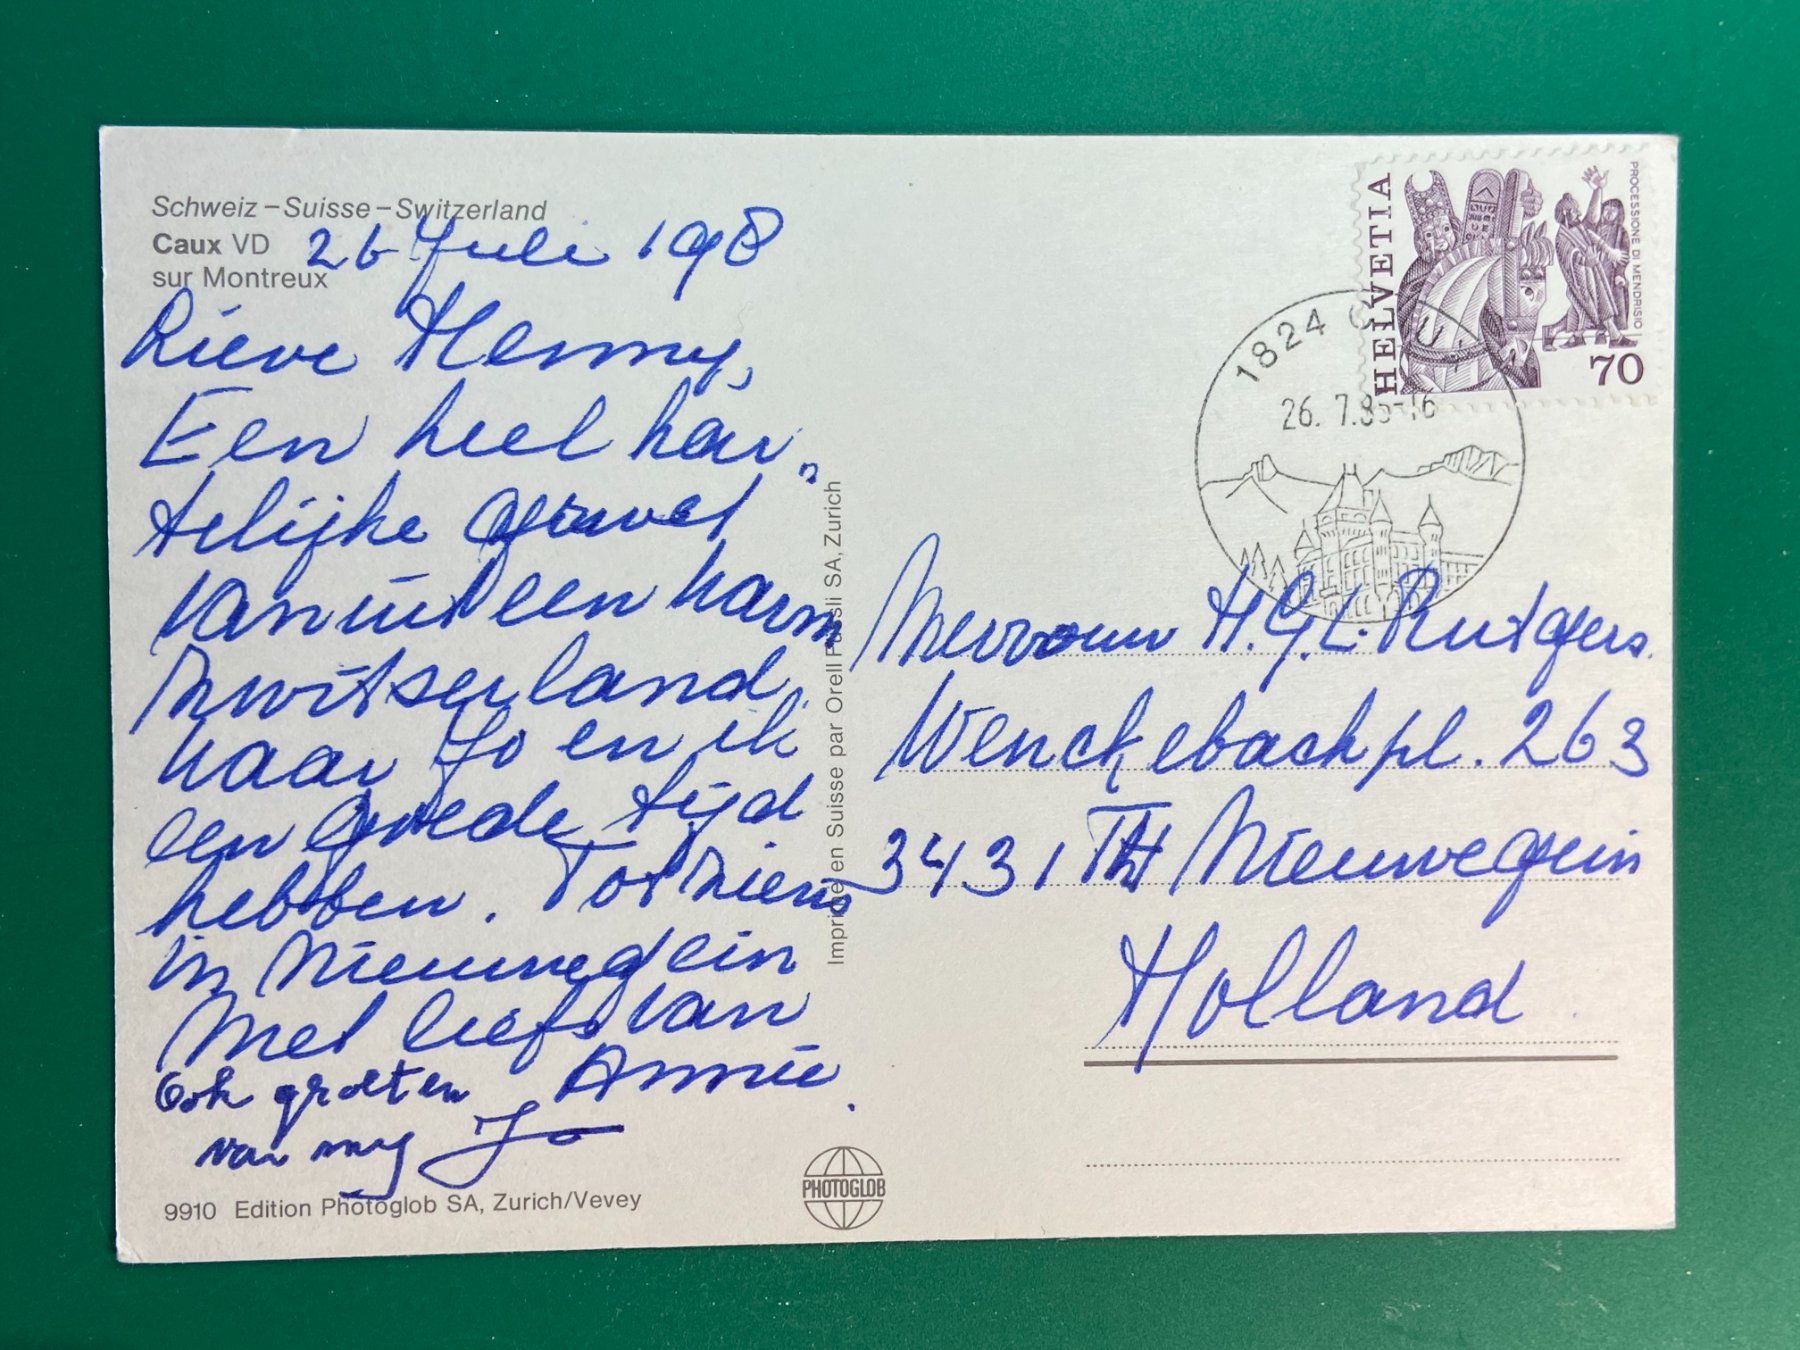 Schweiz – Suisse – Switzerland
Caux VD
sur Montreux
26 Juli 198
Lieve Henny,
Een heel har„
telijke groet
vanuit een warm
Zwitserland.
Waar Jo en ik
een goede tijd
hebben. Tot ziens
in Nieuwegein
Met liefs van
Annie.
Ook groeten
van mij Jo
9910 Edition Photoglob SA, Zurich/Vevey
Imprimé en Suisse par Orell Füssli SA, Zurich
PHOTOGLOB
HELVETIA
PROCESSIONE DI MENDRISIO
70
1824
26. 7.85-16
Mevrouw H.G.L. Rutgers.
Wenckebachpl. 263
3431 TH Nieuwegein
Holland